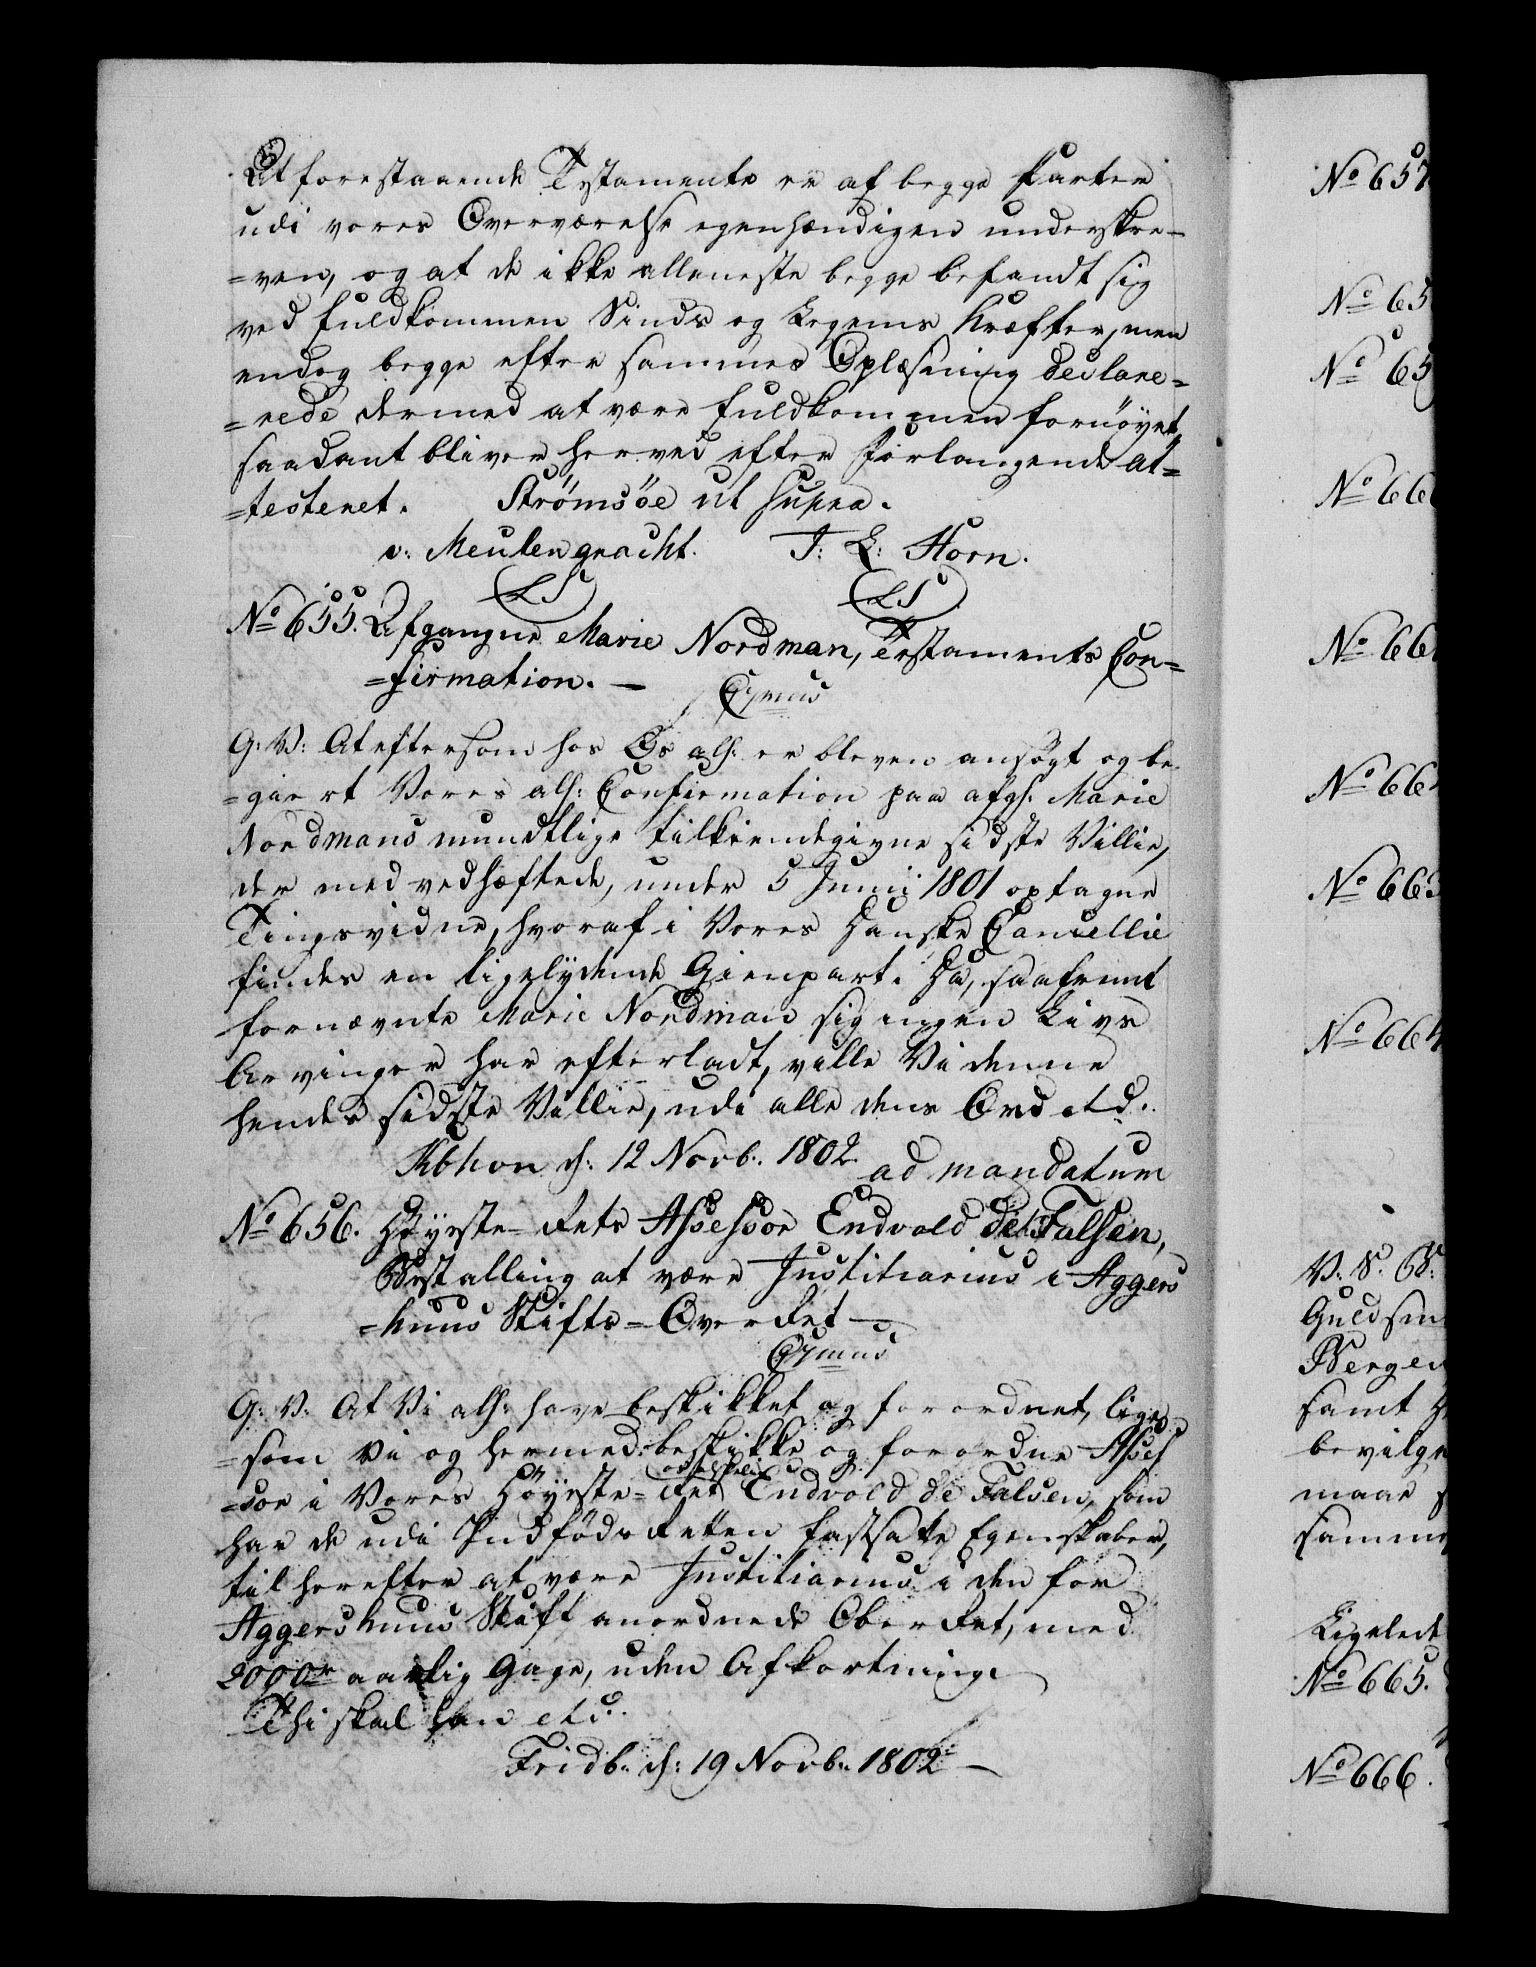 At forestaaende Testamente er af begge Parter
udi vores Overværelse egenhændigen underskre-
=ven, og at de ikke alleneste begge befandt sig
ved fuldkommen Sinds og Legems Kræfter, men
endog begge efter sammes Oplæsning declare=
=rede dermed at være fuldkommen fornöyet,
saadant bliver herved efter Forlangende at=
=testeret. Strømsöe ut supra.
v: Meulengracht. J: L: Horn.
LS LS
No 655. Afgangne Marie Nordman, Testaments Con=
=firmation. —
G: V: At eftersom hos Os all: er bleven ansögt og be
=giert Vores all: Confirmation paa afg: Marie
Nordmans mundtlige tilkiendegivne sidste Villie,
der med vedhæftede, under 5 Junii 1801 optagne
Tingsvidne, hvoraf i Vores Danske Cancellie
findes en ligelydende Gienpart. Da, saafremt
fornævnte Marie Nordman sig ingen Livs
Arvinger har efterladt, ville Vi denne
hendes sidste Villie, udi alle dens Ord etc.
Kbhvn d: 12 Novb: 1802. ad mandatum
No 656. Höyeste=Rets Assessor Endvold de Falsen,
Bestalling at være Justitiarius i Aggers
=huus Stifts=Over Ret —
G: V: At Vi all: have beskikket og forordnet, lige
=som Vi og hermed beskikke og forordne Asses
=sor i Vores Höyeste=Ret Endvold de Falsen, som
har de udi Indföds Retten fastsatte Egenskaber,
til herefter at være Justitiarius i den for
Aggershuus Stift anordnede Ober Ret, med
2000 rdr aarlig Gage, uden Afkortning.
Thi skal han etc.
Fridb: d: 19 Novb: 1802 —
No 657
No 65
No 65
No 66
No 66
No 66
No 663
No 664
V: S: G:
Guldsm
Bergen
samt
bevilge
maae
samme
Ligelede
No 665.
No 666.